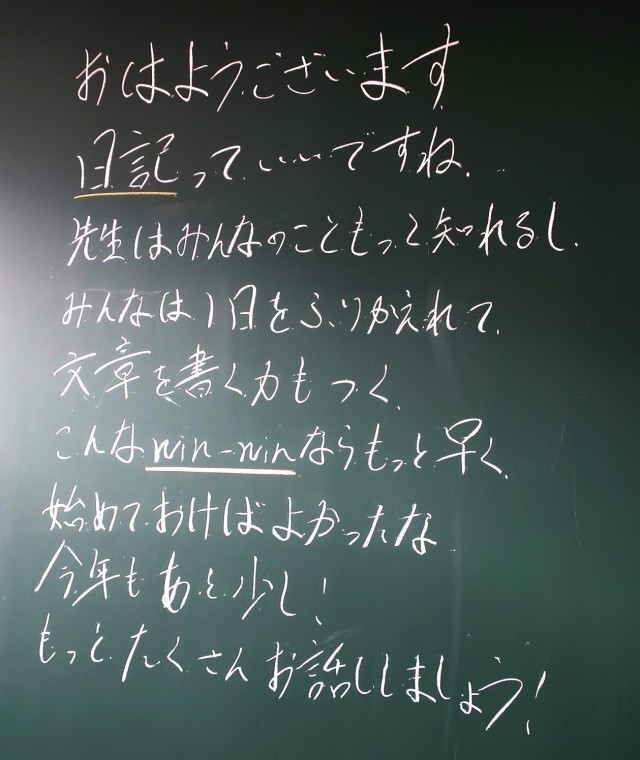 おはようございます
日記っていいですね.
先生はみんなのこともっと知れるし.
みんなは1日をふりかえれて.
文章を書く力もつく.
こんなwin-winならもっと早く.
始めておけばよかったな
今年もあと少し!
もっとたくさんお話ししましょう!